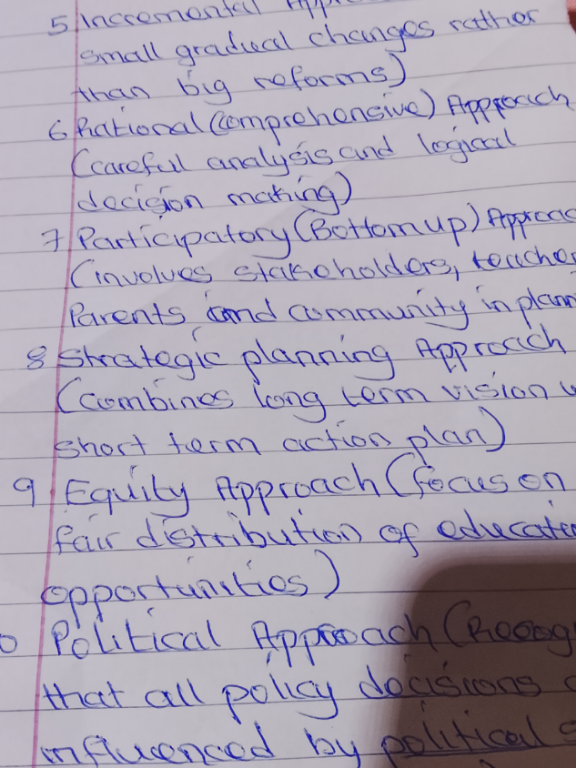 5 Incremental
small gradual changes rather
than big reforms)
6 Rational (comprehensive) Approach
(careful analysis and logical
decision making)
7 Participatory (Bottom up)
(involves stakeholders,
Parents and community in
8 Strategic planning Approach
(combines long term vision
short term action plan)
9 Equity Approach (focus on
fair distribution of
opportunities)
0 Political Approach
that all policy decisions
influenced by political